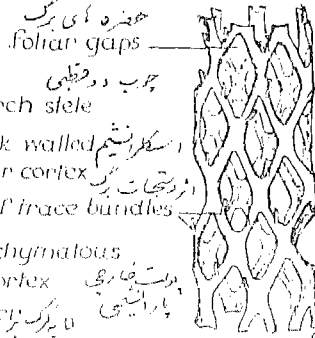 حفره های برگ
foliar gaps
چوب دو قطبی
rch stele
k walled اسکلرانشیم
r cortex
اثر دستجات برگ
f trace bundles
chymatous
ortex پوست خارجی
پارانشیمی